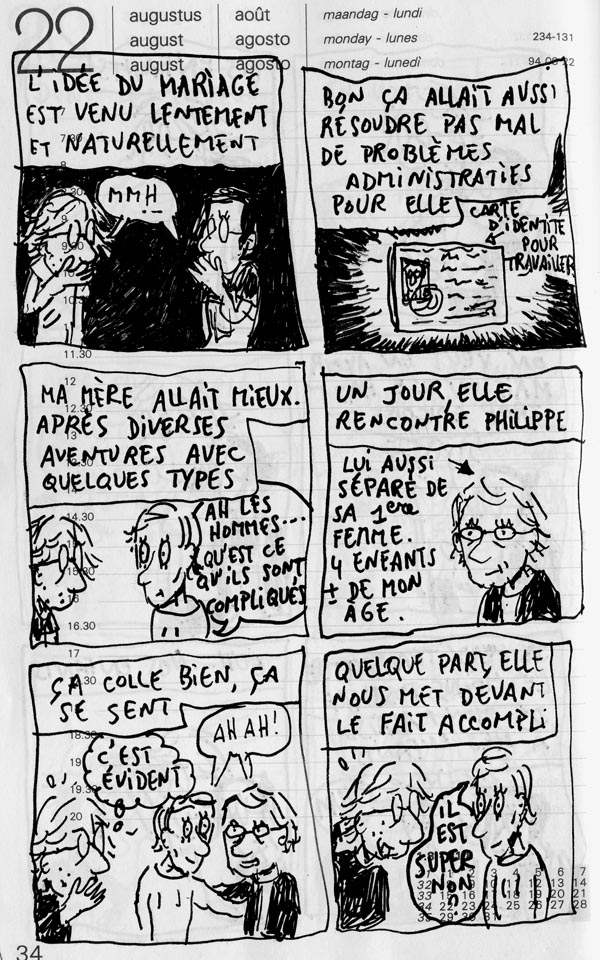 22
augustus
august
august
août
agosto
agosto
maandag - lundi
monday - lunes
montag - lunedì
234-131
L'IDÉE DU MARIAGE
EST VENU LENTEMENT
ET NATURELLEMENT
MMH
BON ÇA ALLAIT AUSSI
RÉSOUDRE PAS MAL
DE PROBLÈMES
ADMINISTRATIFS
POUR ELLE
CARTE
D'IDENTITÉ
POUR
TRAVAILLER
MA MÈRE ALLAIT MIEUX.
APRÈS DIVERSES
AVENTURES AVEC
QUELQUES TYPES
AH LES
HOMMES...
QU'EST CE
QU'ILS SONT
COMPLIQUÉS
UN JOUR, ELLE
RENCONTRE PHILIPPE
LUI AUSSI
SÉPARÉ DE
SA 1ère
FEMME.
4 ENFANTS
± DE MON
ÂGE.
ÇA COLLE BIEN, ÇA
SE SENT
C'EST
ÉVIDENT
AH AH!
QUELQUE PART, ELLE
NOUS MET DEVANT
LE FAIT ACCOMPLI
IL
EST
SUPER
NON?
9
9.30
10
11.30
12
12.30
13
14.30
16.30
17
18.30
19
19.30
20
6 7
13 14
33 15 16 17 18 19 20 21
34 22 23 24 25 26 27 28
35 29 30 31
34